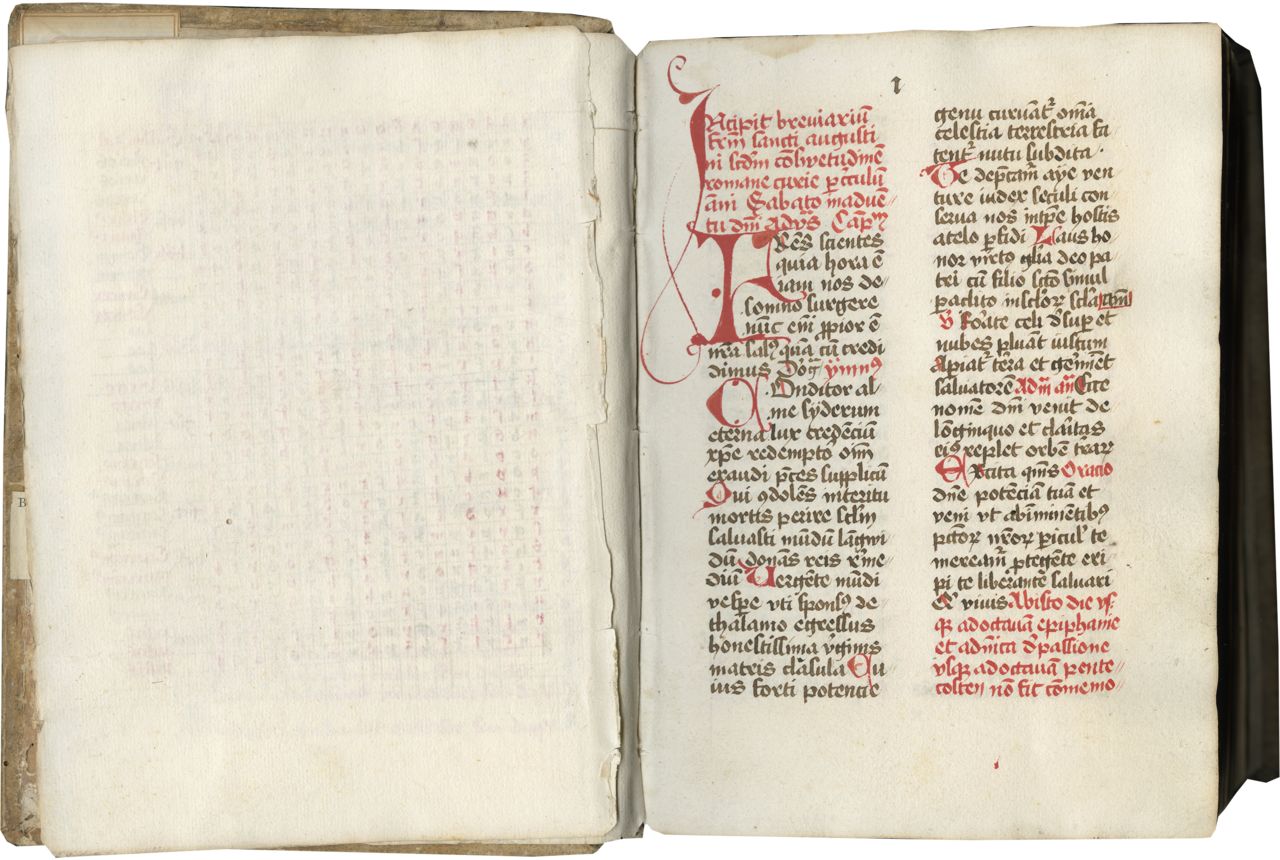 1
INcipit breviariũ
frm̃ sancti augusti
ni scdm̃ cõswetudinẽ
romane curie p circulũ
ani Sabato in adven
tu dm̃ Advs Capm
FRẽs scientes
quia hora ẽ
iam nos de
somno surgere
nũc em̃ ppior ẽ
nr̃a sal9 quã cũ credi
dimus Dog ymn9
COnditor al
me syderum
eterna lux credenciũ
xp̃e redemptor om̃
exaudi p̃ces supplicũ
Qui 9dolẽs interitu
mortis perire sclm̃
salvasti mũdũ lãgwi
dũ donãs reis r̃me
diũ Uergẽte mũdi
vesp̃e vti spons9 de
thalamo egressus
honestissima v̾ginis
matris clãsula Cu
ius forti potencie
genu curvãt̾ om̃ia
celestia terrestria fa
tent̾ nutu subdita
Te dep̃cam̾ agye ven
ture iudex seculi con
serva nos in tp̃e hostis
a telo p̱fidi Laus ho
nor virt9 gl̃ia deo pa
tri cũ filio sc̃to simul
paclito in sclor̾ scla am̃
V̾ Rorate celi d̾sup et
nubes pluãt iustum
Apiat̾ t̾ra et ger̾miet
salvatorẽ Adm̃ añ Ecce
nomẽ dm̃ venit de
lõginquo et claritas
ei9 replet orbẽ t̾rar̾
Excita qm̃s Oracio
Dñe potẽciam tuã et
veni vt ab imminẽtib9
p̃ctor̾ nr̃or̾ picul̾ te
meream̾ p̱tegẽte eri
pi te liberante salvari
Q̃ vivis Ab isto die vs
q̨ ad octavã epiphanie
et a dñica d̾ passione
vsq̨ ad octavã pente
costen nõ fit cõmemo
B